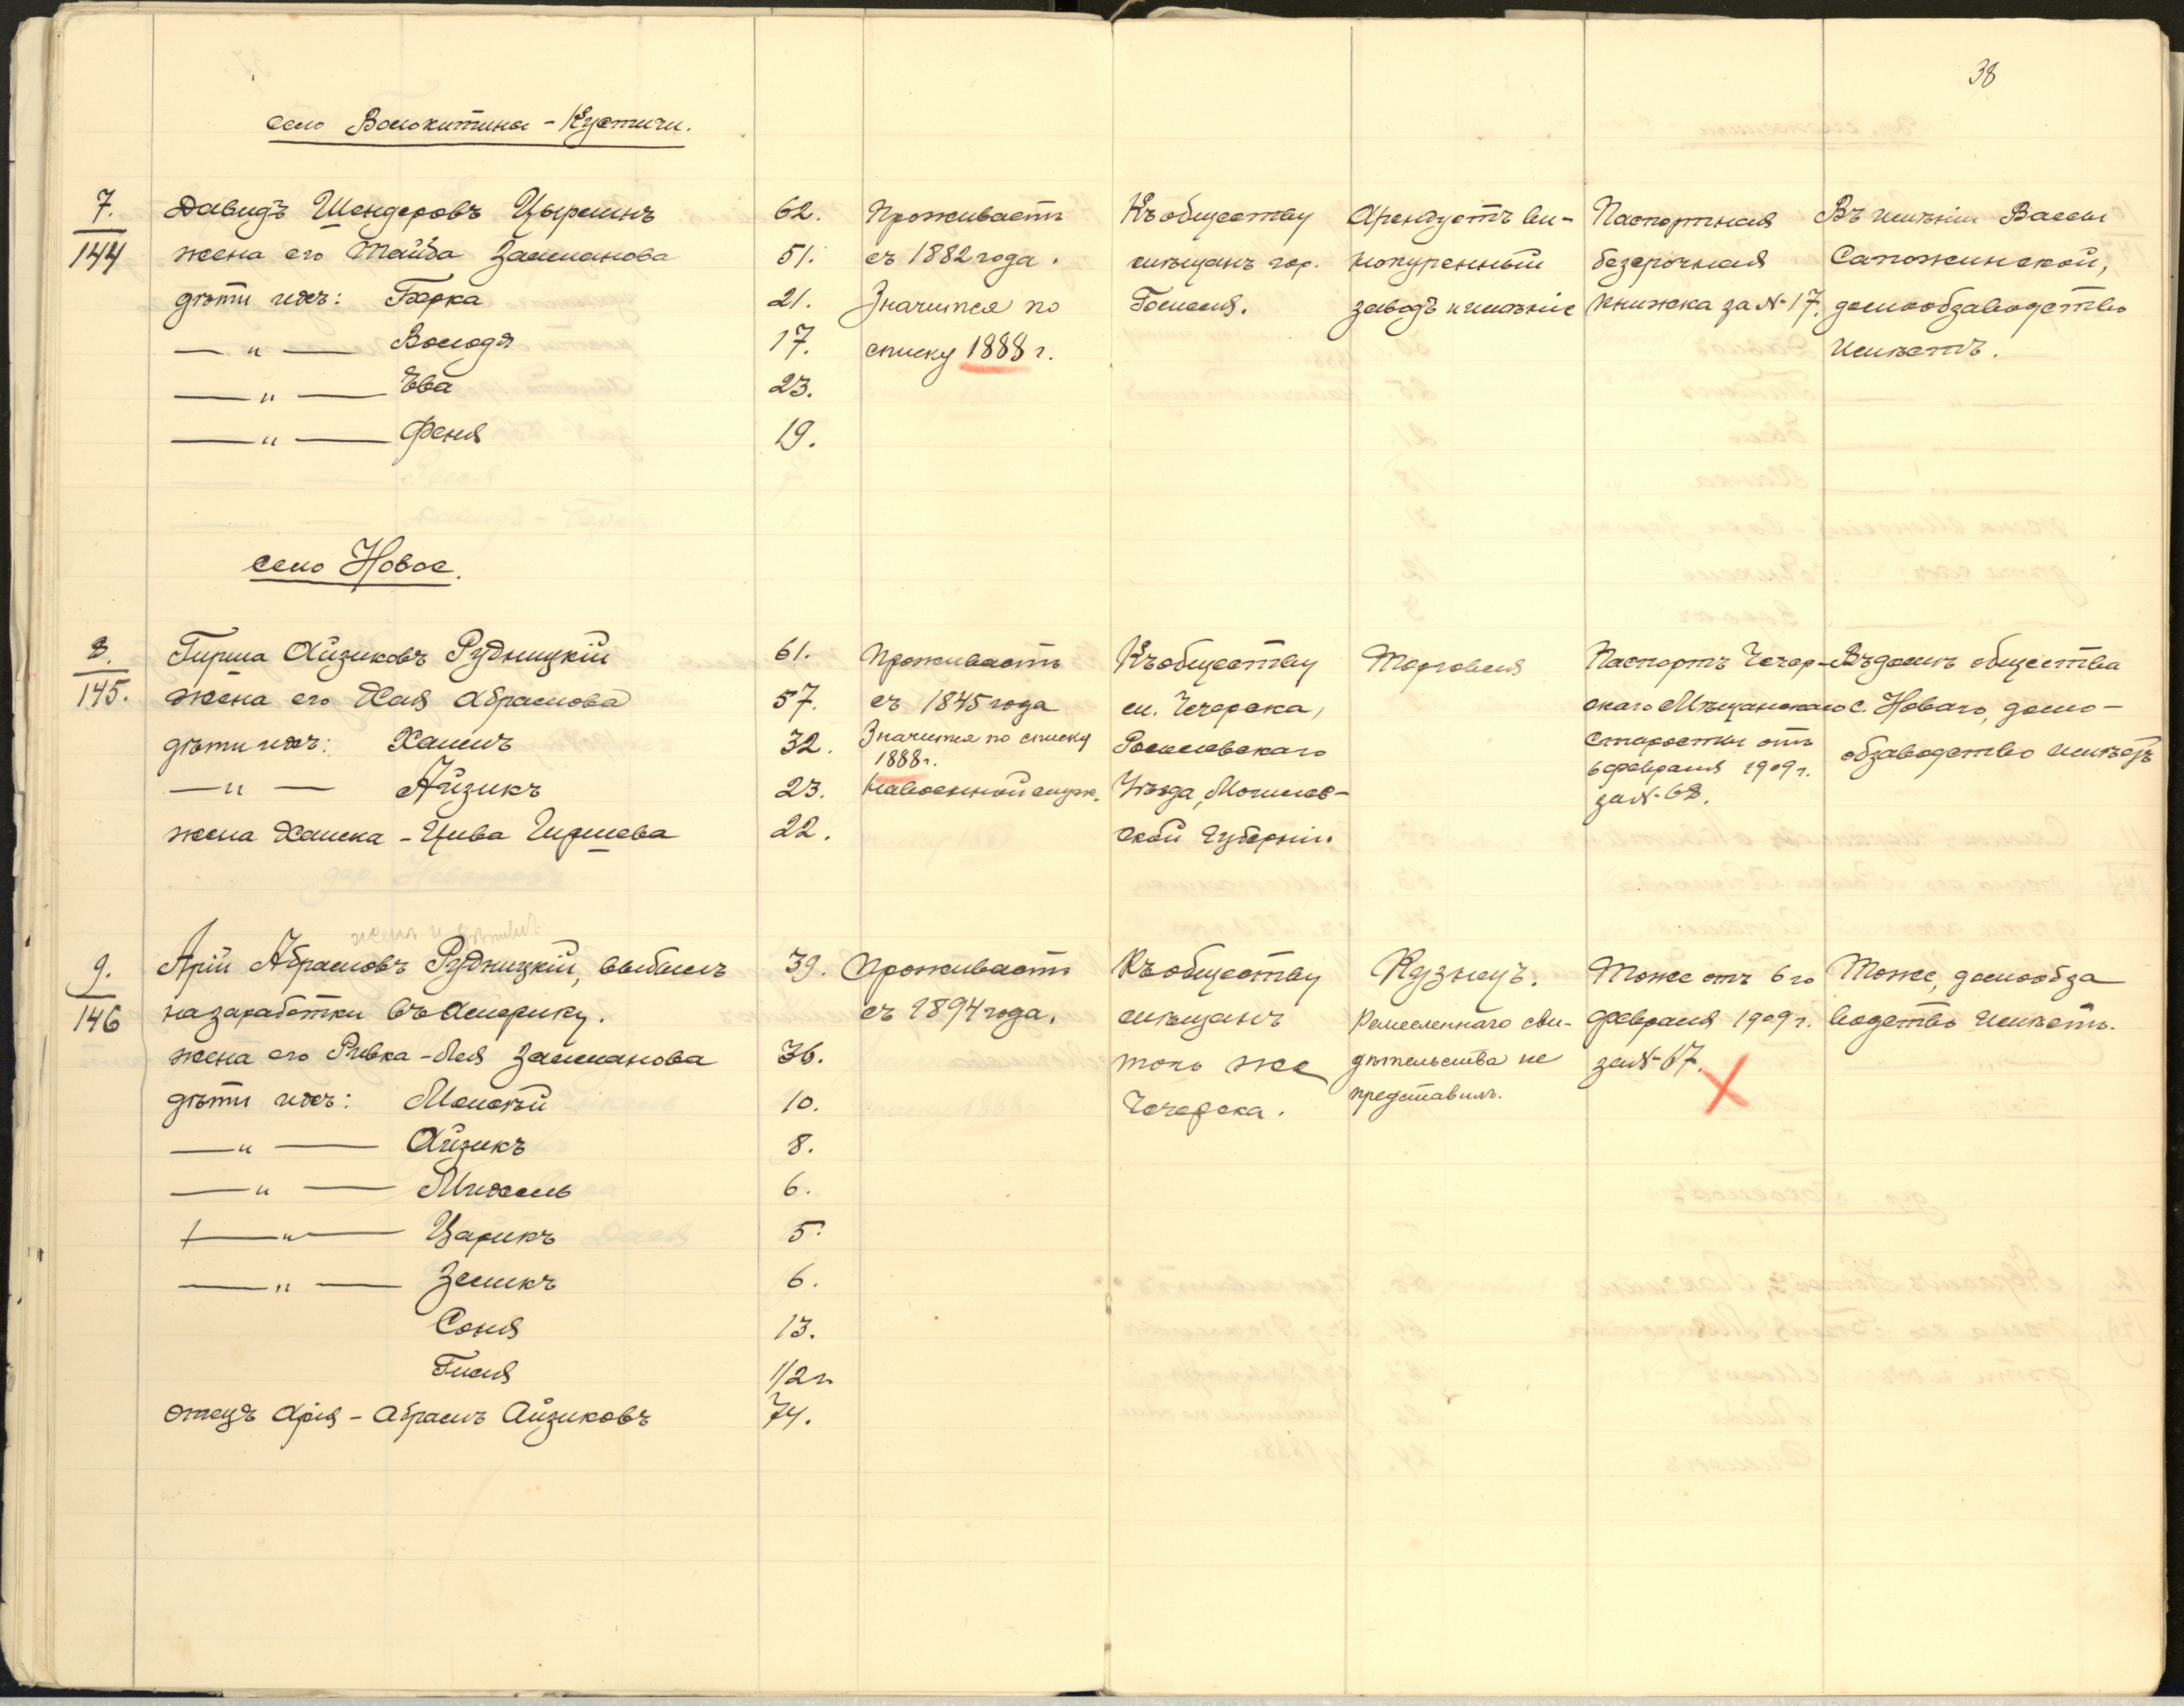 38
село Волокитина-Кустичи.
7.
144
Давидъ Шендеровъ Цырлинъ
жена его Тайба Залманова
дѣти ихъ: Берка
— " — Володя
— " — Ева
— " — Феня
62.
51.
21.
17.
23.
19.
Проживаетъ
съ 1882 года.
Значится по
списку 1888 г.
Къ обществу
мѣщанъ гор.
Гомеля.
Арендуетъ ви-
нокуренный
заводъ и имѣніе
Паспортная
безсрочная
книжка за №17.
Въ имѣніи Вассы
Сапожинской,
домообзаводство
имѣетъ.
село Новое.
8.
145.
Гирша Айзиковъ Рудницкій
жена его Хая Абрамова
дѣти ихъ: Хаимъ
— " — Айзикъ
жена Хаимка - Цива Гиршева
61.
57.
32.
23.
22.
Проживаетъ
съ 1845 года
Значится по списку
1888 г.
На военной служ.
Къ обществу
м. Чечерска,
Рогачевскаго
Уѣзда, Могилев-
ской Губерніи.
Торговля
Паспортъ Чечер-
скаго Мѣщанскаго
Старосты отъ
6 февраля 1909 г.
за №68.
Въ домѣ общества
с. Новаго, домо-
обзаводство имѣетъ
жена и дѣти
9.
146
Арій Абрамовъ Рудницкій, выбылъ
на заработки въ Америку.
жена его Ривка-Лея Залманова
дѣти ихъ: Моисей
— " — Айзикъ
— " — Михель
— " — Царикъ
— " — Зеликъ
Соня
Гися
отецъ Арія - Абрамъ Айзиковъ
39.
36.
10.
8.
6.
5.
6.
13.
1/2 г.
74.
Проживаетъ
съ 1894 года.
Къ обществу
мѣщанъ
того же
Чечерска.
Кузнецъ.
Ремесленнаго сви-
дѣтельства не
представилъ.
Тоже отъ 6го
февраля 1909 г.
за №67.
Тоже, домообза
водство имѣетъ.